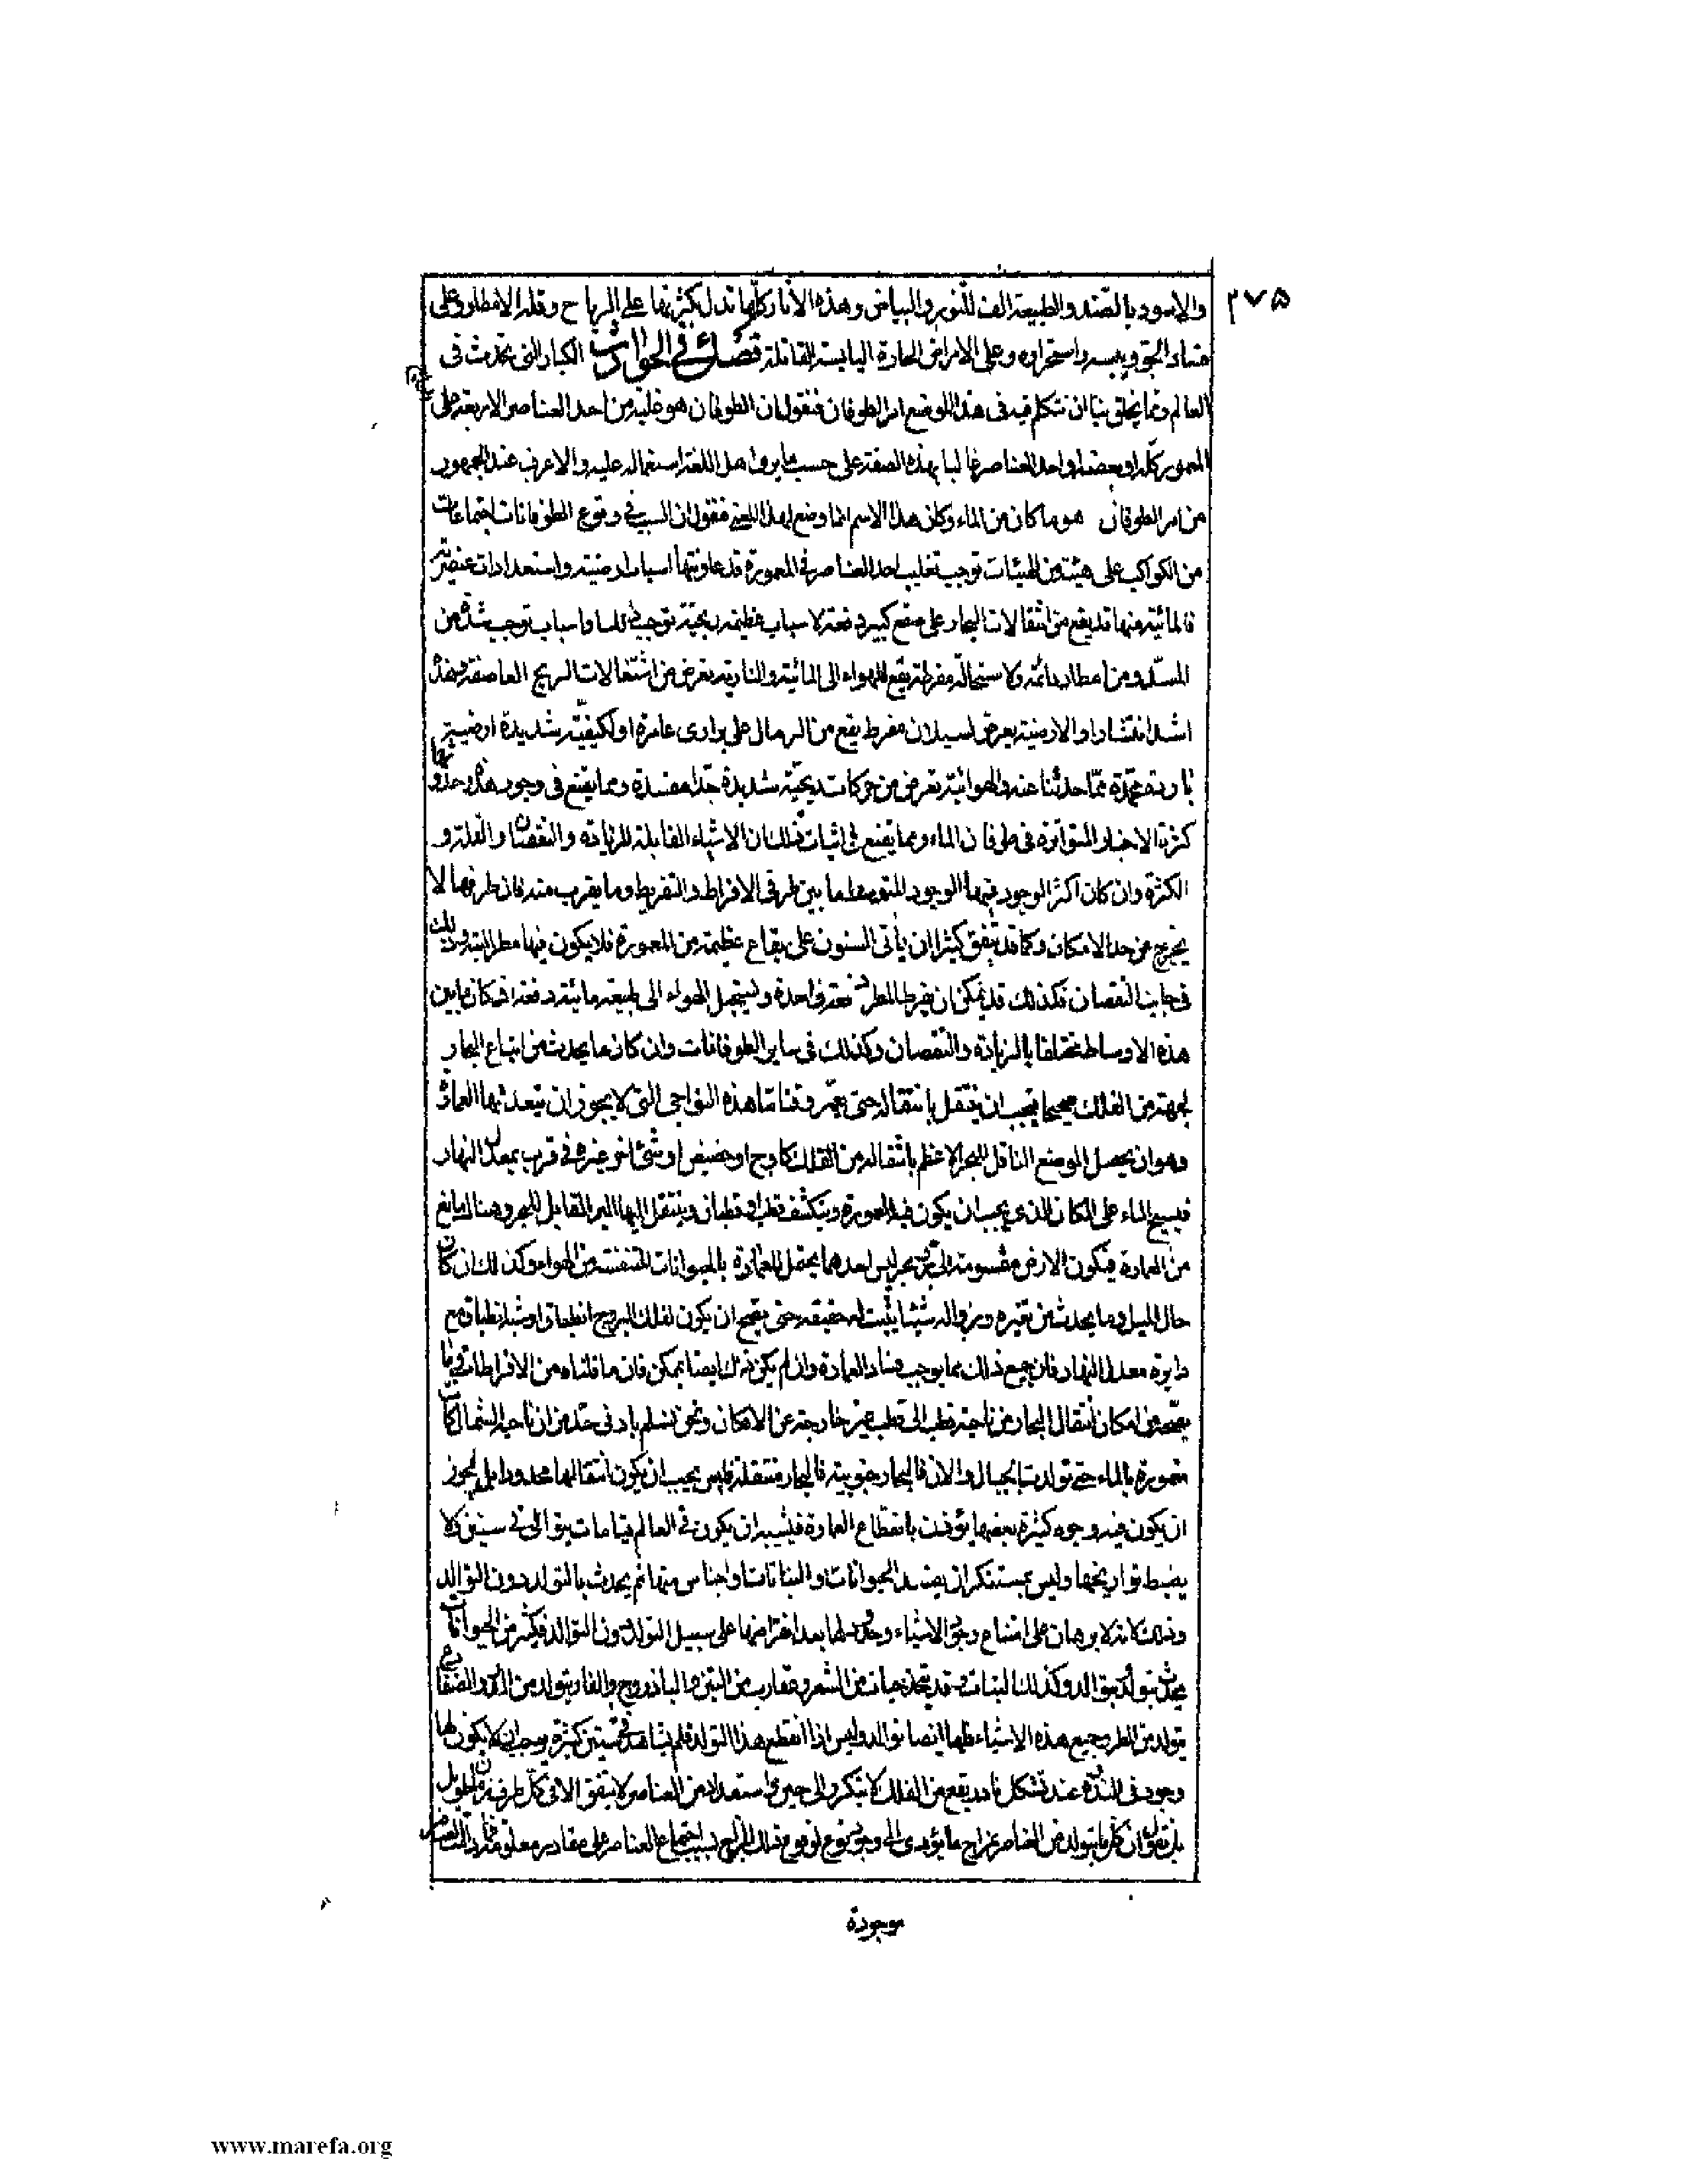 ٢٧٥
والاسود بالضد والطبيعة الف للنور والبياض وهذه الاثار كلها تدل بكثرتها على الرياح وقلة الامطار وعلى
فساد الجو ويبسه واستحراره وعلى الامراض الحارة اليابسة القاتلة فصل في الحوادث الكبار التي تحدث في
العالم ومما يخلق بنا ان نتكلم فيه في هذا الموضع امر الطوفان فنقول ان الطوفان هو غلبة من احد العناصر الاربعة على
المعمور كله او بعضه او احد العناصر غالبا بهذه الصفة على حسب ما يرى اهل اللغة استعماله عليه والاعرف عند الجمهور
من امر الطوفان هو ما كان من الماء وكان هذا الاسم انما وضع لهذا المعنى فنقول ان السبب في وقوع الطوفانات اجتماعات
من الكواكب على هيئة من الهيئات توجب تغليب احد العناصر في المعمورة قد عاونتها اسباب ارضية واستعدادات عنصرية
فالمائية منها قد يقع من انتقالات البحار على صقع كبير دفعة لاسباب عظيمة ريحية توجب ذلك او اسباب توجب شدة من
المد ومن امطار دائمة ولاستحالة مفرطة يقع للهواء الى المائية والنارية يعرض من اشتعالات الريح العاصفة وهذه
اشد انتشارا والارضية يعرض لسيلان مفرط يقع من الرمال على براري عامرة او لكيفية شديدة ارضية
باردة مجمدة مما حدثنا عنه والهوائية تعرض من حركات ريحية شديدة جدا مفسدة ومما يقنع في وجود هذه وحدوثها
كثرة الاخبار المتواترة في طوفان الماء ومما يقنع في اثبات ذلك ان الاشياء القابلة للزيادة والنقصان والقلة و
الكثرة وان كان اكثر الوجود فيها الوجود المتوسط ما بين طرفي الافراط والتفريط وما يقرب منه فان طرفيها لا
يخرج عن حد الامكان وكما قد يتفق كثيرا ان يأتي السنون على بقاع عظيمة من المعمورة فلا يكون فيها مطر البتة وذلك
في جانب النقصان فكذلك قد يمكن ان يفرط المطر دفعة واحدة ويستحيل الهواء الى طبيعة مائية دفعة اذ كان ما بين
هذه الاوساط مختلفا بالزيادة والنقصان وكذلك في ساير الطوفانات وان كان ما يحدث من اتباع البحار
لجهة من الفلك صحيحا فيجب ان ينتقل بانتقاله حتى يعمر وقتا ما هذه النواحي التي لا يجوز ان يتعداها العمائر
وهو ان يحصل الموضع الناقل للبحر الاعظم بانتقاله من الفلك كاوج او حضيض او شيء اخر غيره في قرب معدل النهار
فيسيح الماء على المكان الذي يجب ان يكون فيه المعمورة وينكشف قطب او قطبان وينتقل اليها البر المقابل للبحر وهناك مانع
من العمارة فيكون الارض مقسومة الى بر وبحر ليس احدهما يحتمل العمارة بالحيوانات المتنفسة من الهواء وكذلك ان كان
حال الميل وما يحدث من تغيره وزواله شيئا يثبت له حقيقة حتى يصح ان يكون لفلك البروج انطباق او شبه انطباق مع
دايرة معدل النهار فان جميع ذلك مما يوجب فساد العمارة وان لم يكن ذلك ايضا يمكن فان ما قلناه من الافراطات وما
يصح من امكان انتقال البحار من ناحية قطب الى قطب غير خارجة عن الامكان ونحن نعلم بادنى حدس ان ناحية الشمال كانت
مغمورة بالماء حتى تولدت الجبال والان فالبحار جنوبية فالبحار منتقلة فليس يجب ان يكون انتقالها محدودا بل يجوز
ان يكون فيه وجوه كثيرة بعضها يؤذن بانقطاع العمارة فيشبه ان يكون في العالم قيامات يتوالى في سنين لا
يضبط تواريخها وليس بمستنكر ان يفسد الحيوانات والنباتات او اجناس منها ثم يحدث بالتولد دون التوالد
وذلك لانه لا برهان على امتناع وجود الاشياء وحدوثها بعد انقراضها على سبيل التولد دون التوالد فكثير من الحيوانات
يحدث بتولد وبتوالد وكذلك النبات وقد يتخذ حيات من الشعر وعقارب من التين والباذروج والفار يتولد من المدر والضفادع
يتولد من المطر وجميع هذه الاشياء فلها ايضا توالد وليس اذا انقطع هذا التولد فلم يشاهد في سنين كثيرة يوجب ان لا يكون لها
وجود في الندرة عند تشكل نادر يقع من الفلك لا يتكرر الى حين واستعداد من العناصر لا يتفق الا في كل طرف زمان طويل
بل نقول ان كل ما يتولد من العناصر بمزاج ما يؤدي الى وجود نوع لوقوع ذلك المزاج بسبب اجتماع العناصر على مقادير معلومة فما دامت العناصر
موجودة
www.marefa.org